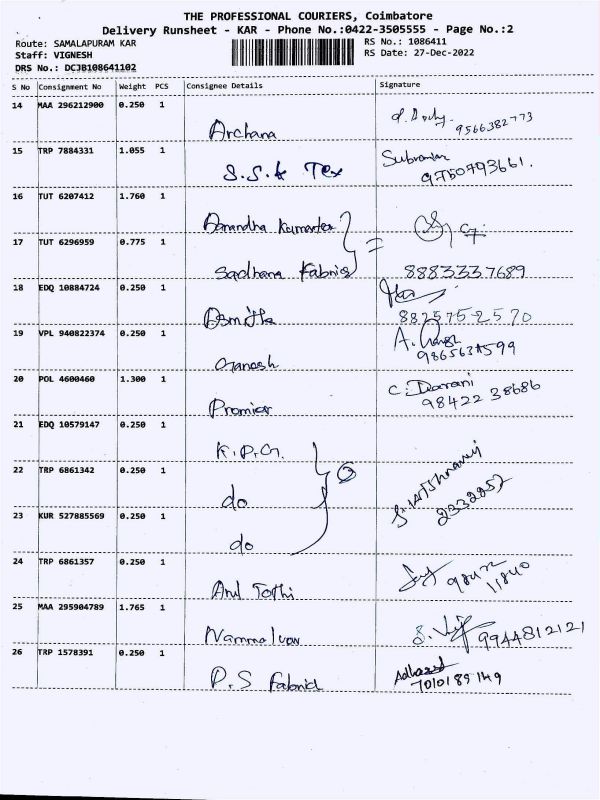 THE PROFESSIONAL COURIERS, Coimbatore
Delivery Runsheet - KAR - Phone No.:0422-3505555 - Page No.:2
Route: SAMALAPURAM KAR
RS No.: 1086411
Staff: VIGNESH
RS Date: 27-Dec-2022
DRS No.: DCJB108641102
S No Consignment No Weight PCS Consignee Details Signature
14 MAA 296212900 0.250 1
Archana 9566382773
15 TRP 7884331 1.055 1 Subramani
S.S.K Tex 9750793661.
16 TUT 6207412 1.760 1
Anandha Kumar
17 TUT 6296959 0.775 1
Sadhana Fabrics 8883337689
18 EDQ 10884724 0.250 1
Asmitha 8825752570
19 VPL 940822374 0.250 1
Ganesh
20 POL 4600460 1.300 1 C. Darani
Promier 98422 38686
21 EDQ 10579147 0.250 1
K.P.G.
22 TRP 6861342 0.250 1
do 2332257
23 KUR 527885569 0.250 1
do
24 TRP 6861357 0.250 1
Arul Jothi 98422 11840
25 MAA 295904789 1.765 1
Nammalvar 9944812121
26 TRP 1578391 0.250 1
P.S Fabrics 7010189149